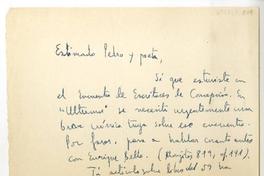 Estimado Pedro y poeta,
Sé que estuviste en
el Encuentro de Escritores de Concepción. En
"Ultramar" se necesita urgentemente una
breve crónica tuya sobre ese encuentro.
Por favor, pasa a hablar cuanto antes
con Enrique Bello. (Monjitas 819, of. 191).
Tu artículo sobre libros del 59 ha